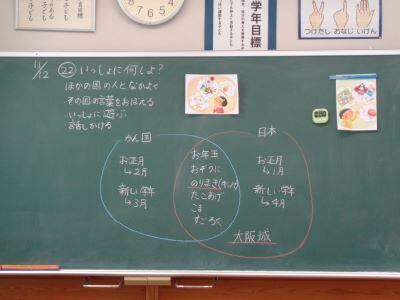 学年目標
つけたし おなじ いけん
11/12
㉒ いっしょに何しよ?
ほかの国の人となかよく
その国の言葉をおぼえる
いっしょに遊ぶ
話しかける
かん国
お正月
↳2月
新しい学年
↳3月
お年玉
おぞうに
のりまき(キンパ)
たこあげ
こま
すごろく
日本
お正月
↳1月
新しい学年
↳4月
大阪城